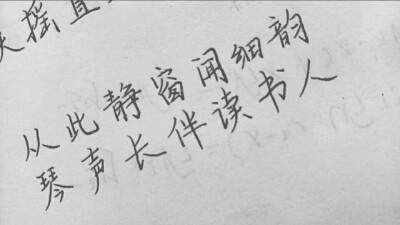 扶摇直
从此静窗闻细韵
琴声长伴读书人